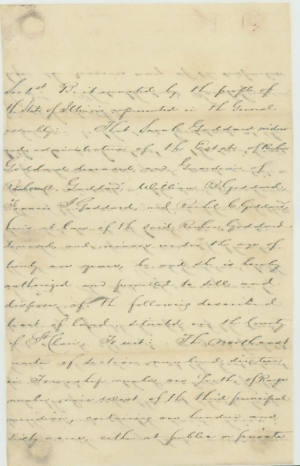 Sec 1st Be it enacted by the people of
the State of Illinois represented in the General
assembly: That Sarah Goddard, widow
and administratrix of the Estate of
Goddard deceased, and Guardian of
Goddard, William Goddard,
Francis Goddard, and Goddard,
heirs at law of the said Goddard
deceased and minors under the age of
twenty one years, be and she is hereby
authorized and permitted to sell and
dispose of the following described
tract of land, situated in the County
of St Clair, To wit: The North east
quarter of section one hundred,
in Township number one South, of Range
number nine West of the third principal
meridian, containing one hundred and
sixty acres, either at public or private